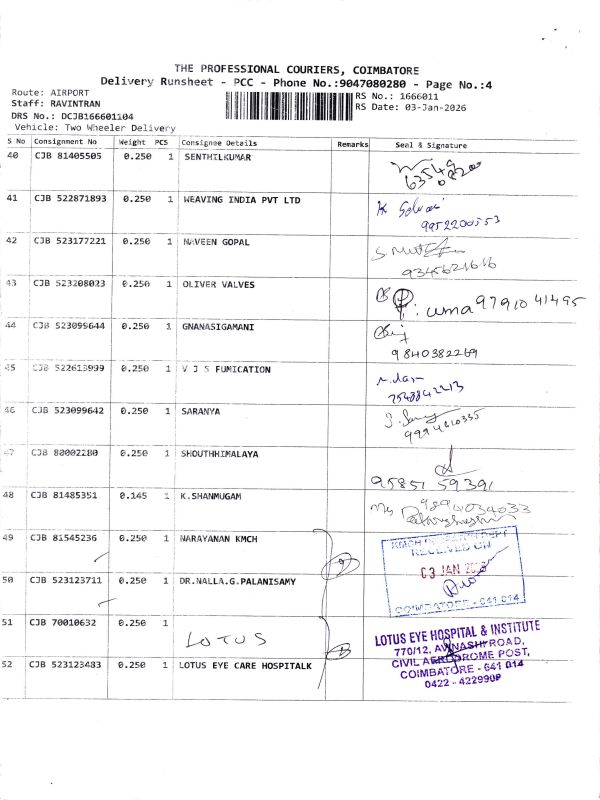 THE PROFESSIONAL COURIERS, COIMBATORE
Delivery Runsheet - PCC - Phone No.:9047080280 - Page No.:4
Route: AIRPORT
Staff: RAVINTRAN
DRS No.: DCJB166601104
Vehicle: Two Wheeler Delivery
RS No.: 1666011
RS Date: 03-Jan-2026
S No Consignment No Weight PCS Consignee Details Remarks Seal & Signature
40 CJB 81405505 0.250 1 SENTHILKUMAR
41 CJB 522871893 0.250 1 WEAVING INDIA PVT LTD
K Selvai
9952200553
42 CJB 523177221 0.250 1 NAVEEN GOPAL
9345621616
43 CJB 523208023 0.250 1 OLIVER VALVES
: uma 9791041495
44 CJB 523099644 0.250 1 GNANASIGAMANI
9840382269
45 CJB 522613999 0.250 1 V J S FUMICATION
46 CJB 523099642 0.250 1 SARANYA
9994810335
47 CJB 80002280 0.250 1 SHOUTHHIMALAYA
95851 59391
48 CJB 81485351 0.145 1 K.SHANMUGAM
9894034033
49 CJB 81545236 0.250 1 NARAYANAN KMCH
RECEIVED ON
03 JAN
COIMBATORE - 641 014
50 CJB 523123711 0.250 1 DR.NALLA.G.PALANISAMY
51 CJB 70010632 0.250 1 LOTUS
52 CJB 523123483 0.250 1 LOTUS EYE CARE HOSPITALK
LOTUS EYE HOSPITAL & INSTITUTE
770/12, AVINASHI ROAD,
CIVIL AERODROME POST,
COIMBATORE - 641 014
0422 - 4229900